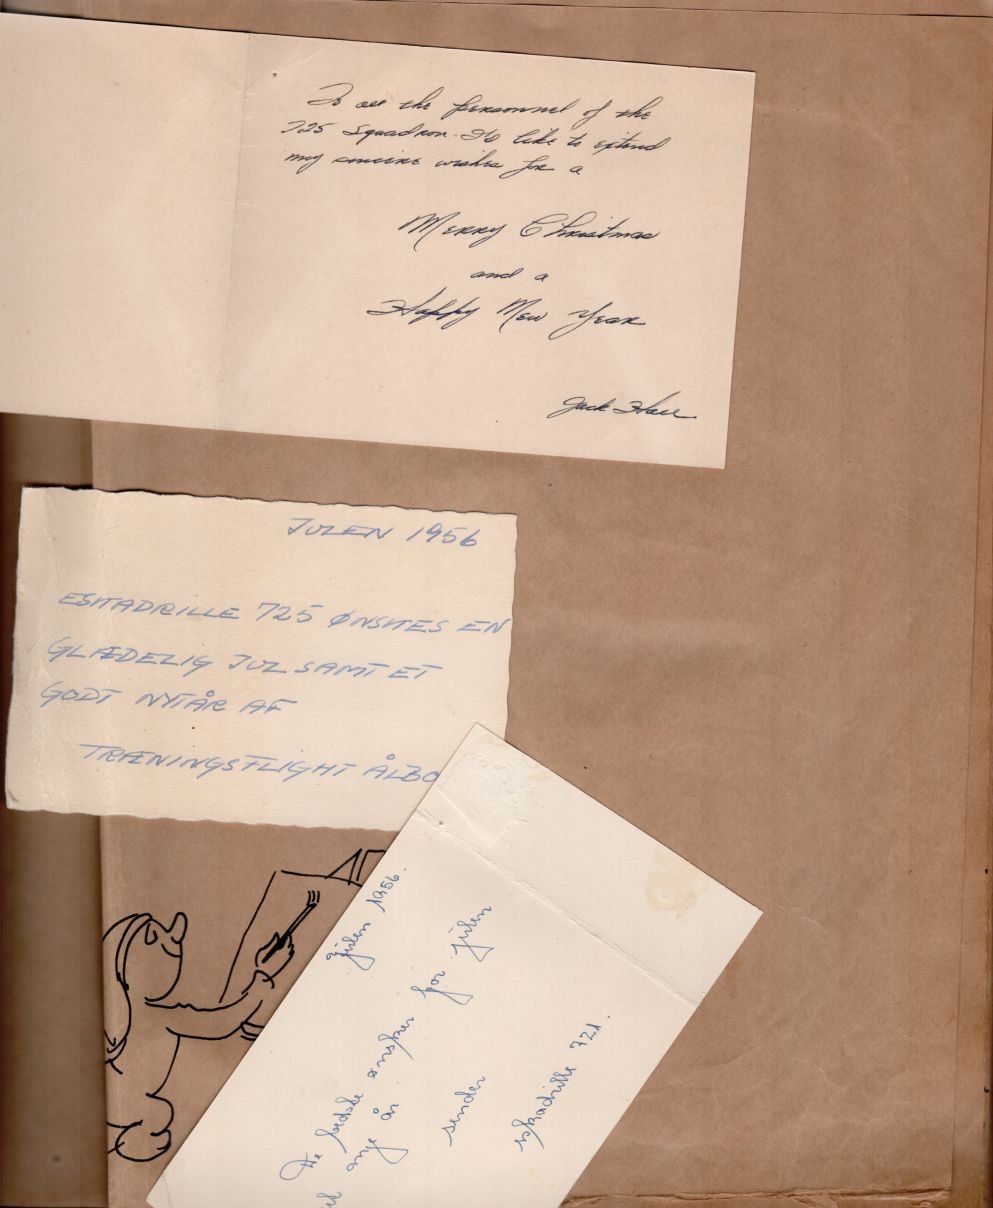 To all the personnel of the
725 Squadron. I'd like to extend
my sincere wishes for a
Merry Christmas
and a
Happy New Year
Jack
JULEN 1956
ESKADRILLE 725 ØNSKES EN
GLÆDELIG JUL SAMT ET
GODT NYTÅR AF
TRÆNINGSFLIGHT ÅLBO
Julen 1956.
De bedste ønsker for julen
nye år
sender
eskadrille 721.